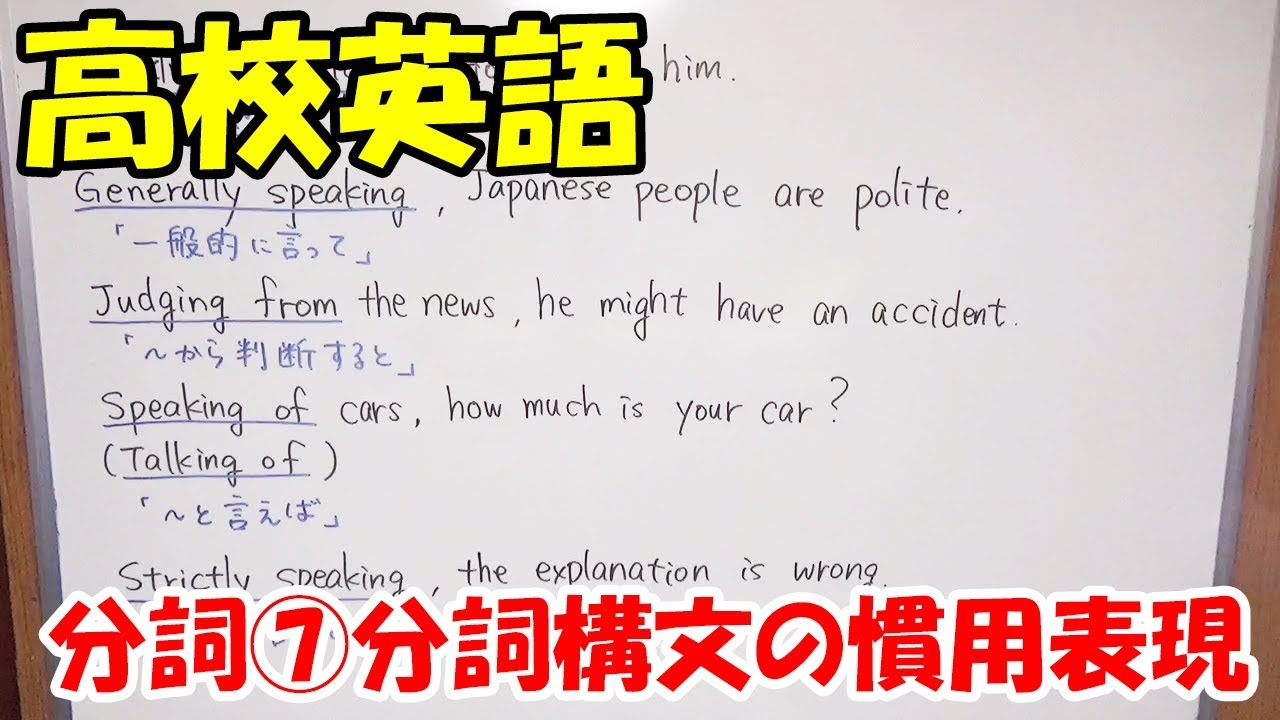 高校英語
him.
Generally speaking, Japanese people are polite.
「一般的に言って」
Judging from the news, he might have an accident.
「〜から判断すると」
Speaking of cars, how much is your car?
(Talking of)
「〜と言えば」
Strictly speaking, the explanation is wrong.
分詞⑦分詞構文の慣用表現